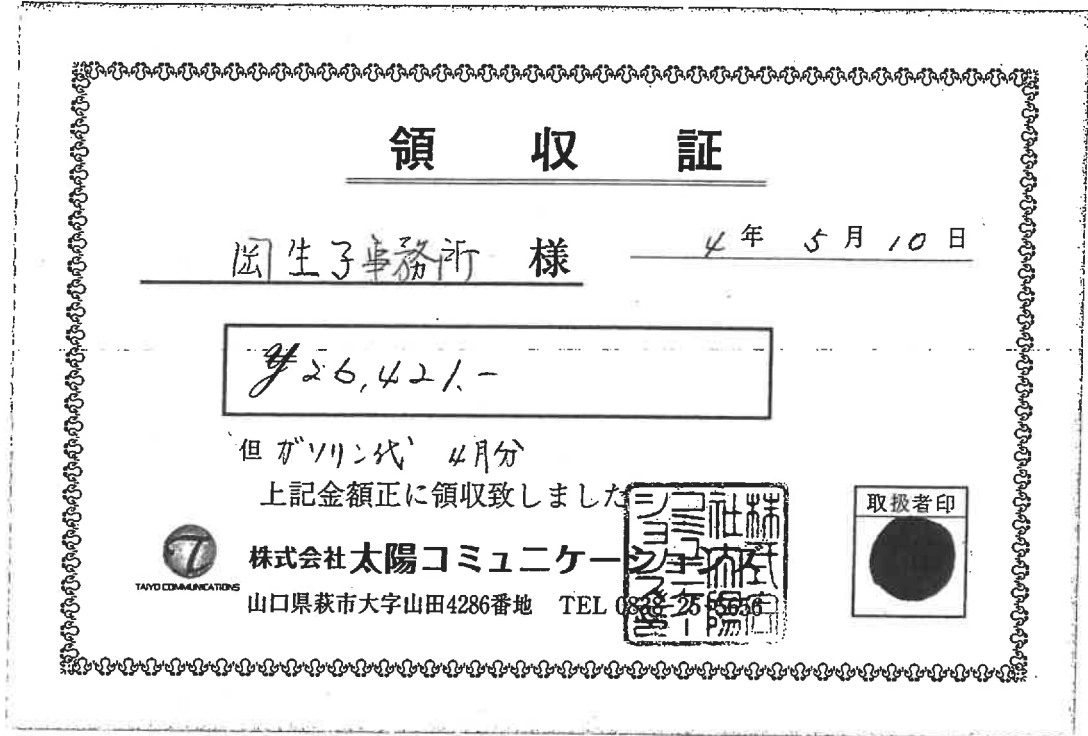 領収証
岡生子事務所 様
4年 5月 10日
¥26,421.-
但 ガソリン代 4月分
上記金額正に領収致しました
取扱者印
TAIYO COMMUNICATIONS
株式会社 太陽コミュニケーションズ
山口県萩市大字山田4286番地 TEL 0838-25-5656
株式会社太陽コミュニケーションズ